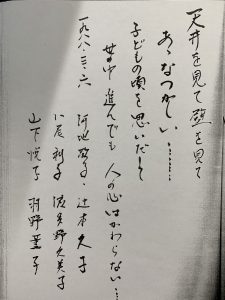 天井を見て壁を見て
あゝなつかしい………
子どもの頃を思いだして
世の中 進んでも 人の心はかわらない…
一九八八・三・六
河地 子・辻本久子
仁尾利子 波多野久美子
山下悦子 羽野葉子